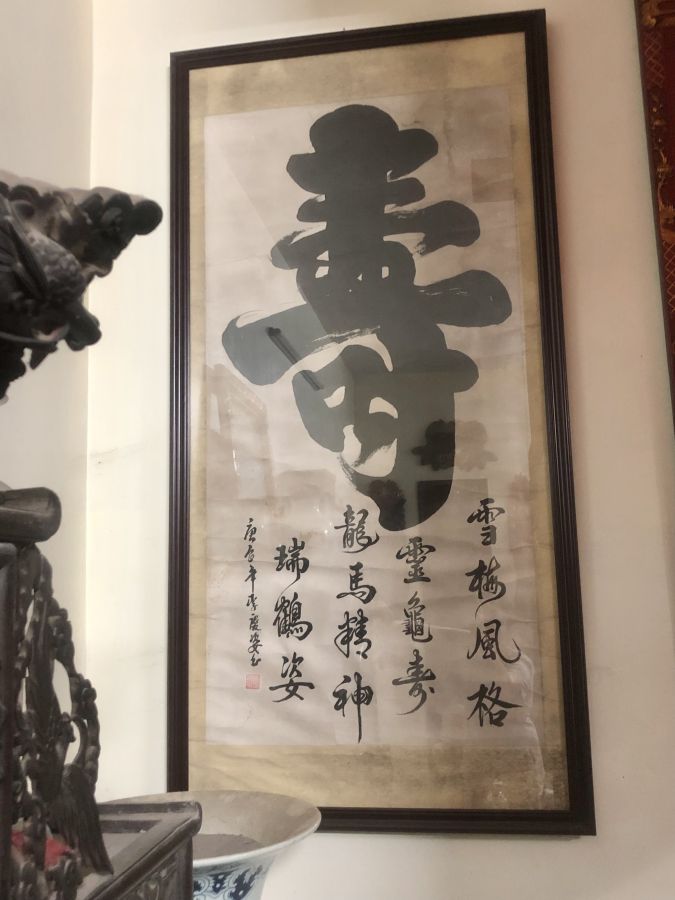 壽
雪梅風格
靈龜壽
龍馬精神
瑞鶴姿
庚辰年李慶